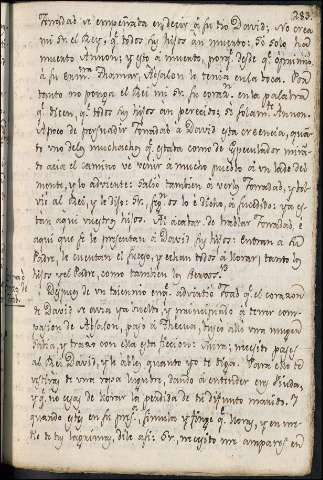 283.
Jonadab se empeñava en decir à su tio David; No crea
mi Sr. el Rei, q.e todos sus hijos àn muerto: Solo hà
muerto Amnon; y esto à muerto, porq.e desde q.e oprimiò
à su erm.na Thamar, Absalon le tenia en la boca. Por
tanto no ponga el Rei mi Sr. en su coraz.n en la palabra
q.e dicen, q.e todos sus hijos àn perecido; si solam.te Amnon.
Apoco de persuadir Jonadab à David esta creencia, quan-
to uno de los muchachos q.e estava como de Especulador miran-
do acia el camino ve venir à mucho pueblo à un lado del
monte, y lo advierte: Saliò tambien à verlo Jonadab, y bol-
viò al Rei, y le dijo: Sr. segun os lo è dicho, à sucedido: ya es-
tan aqui vuestros hijos. Al acabar de hablar Jonadab, è
aqui que se le presentan à David sus hijos: Entran a su
Padre, le cuentan el suceso, y echan todos à llorar, tanto los
hijos y el Padre, como tambien los siervos.
Despues de un triennio en q.e advirtiò Joab q.e el corazon
de David se avia ya buelto, y principiando à tener com-
pasion de Absalon, pasò à Thecua, trajo alli una muger
sabia, y trazò con ella esta ficcion: Mira; necesito pases
al Rei David, y le ables quanto yo te diga. Para ello te
vestiras de una ropa lugubre, dando à entender eres Viuda,
y q.e no cesas de llorar la perdida de tu difunto marido. Y
quando estès en su pres.a, simula y finge q.e lloras, y en me-
dio de tus lagrimas, dile asi: Sr, necesito me ampareis en